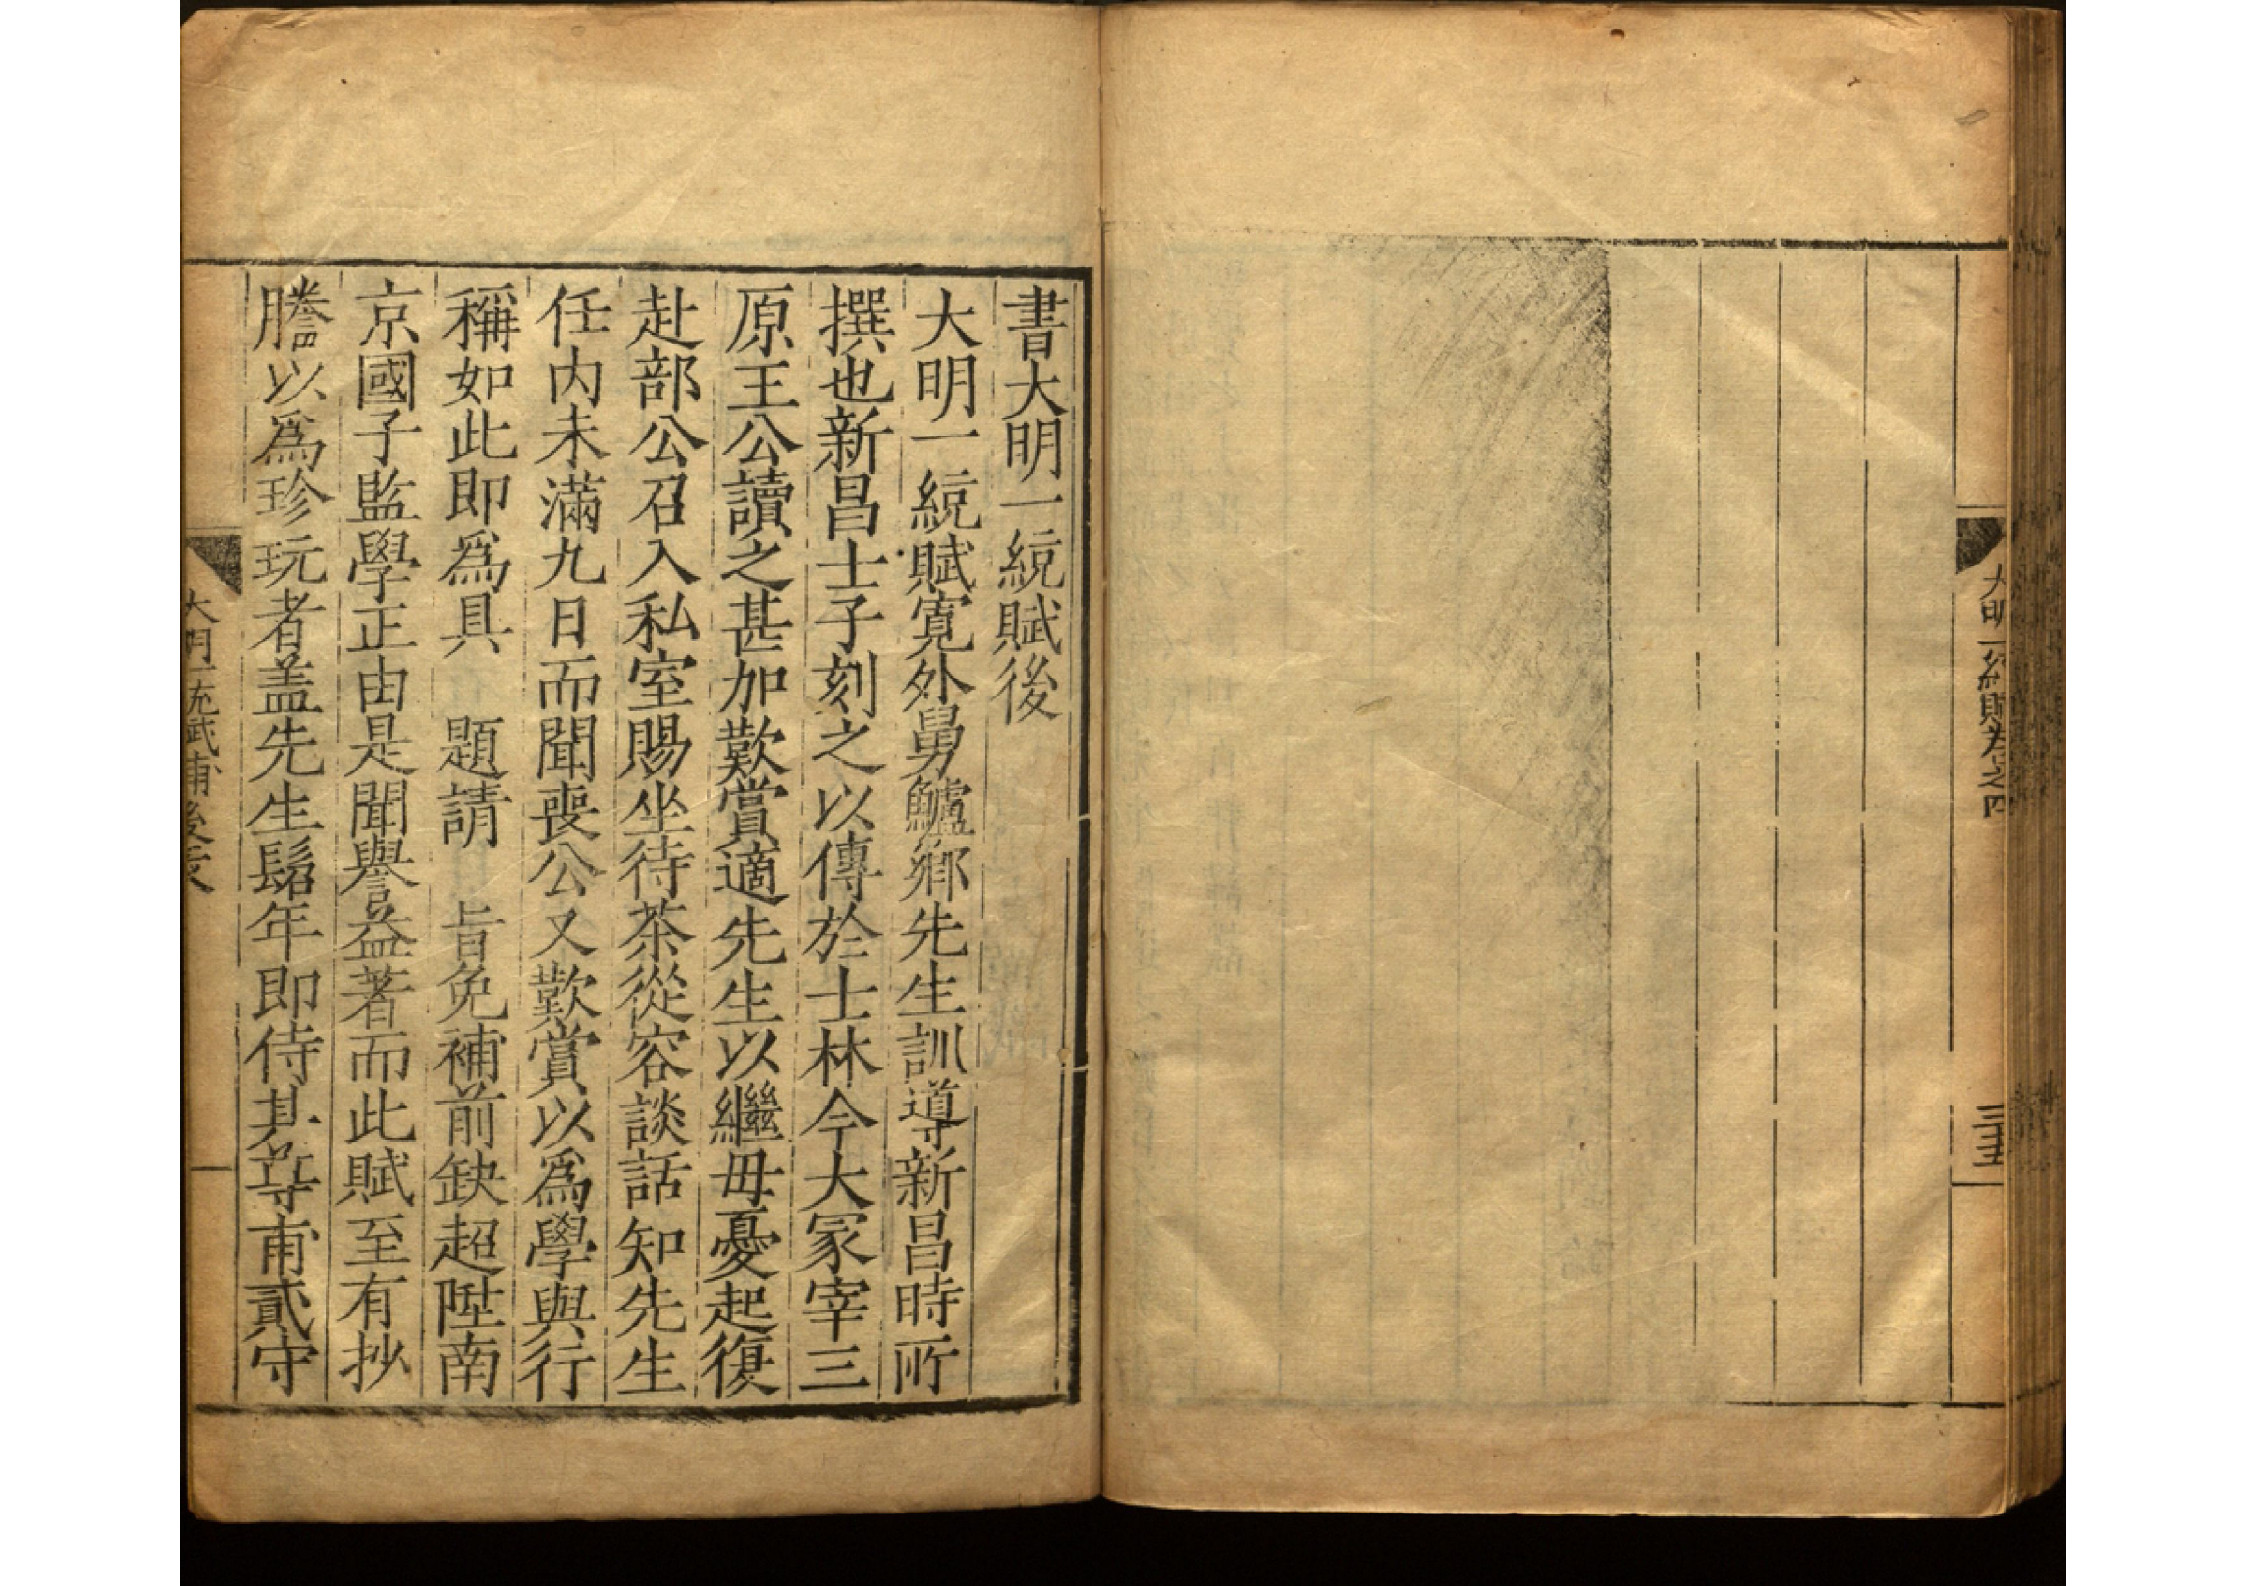 大明一統賦卷之四
三十五
書大明一統賦後
大明一統賦寬外舅鱸鄉先生訓導新昌時所
撰也新昌士子刻之以傳於士林今大冢宰三
原王公讀之甚加歎賞適先生以繼毋憂起復
赴部公召入私室賜坐待茶從容談話知先生
任內未滿九日而聞喪公又歎賞以爲學與行
稱如此即爲具 題請 旨免補前缺超陞南
京國子監學正由是聞譽益著而此賦至有抄
謄以爲珍玩者盖先生髫年即侍其尊甫貳守
大明一統賦補後序
一